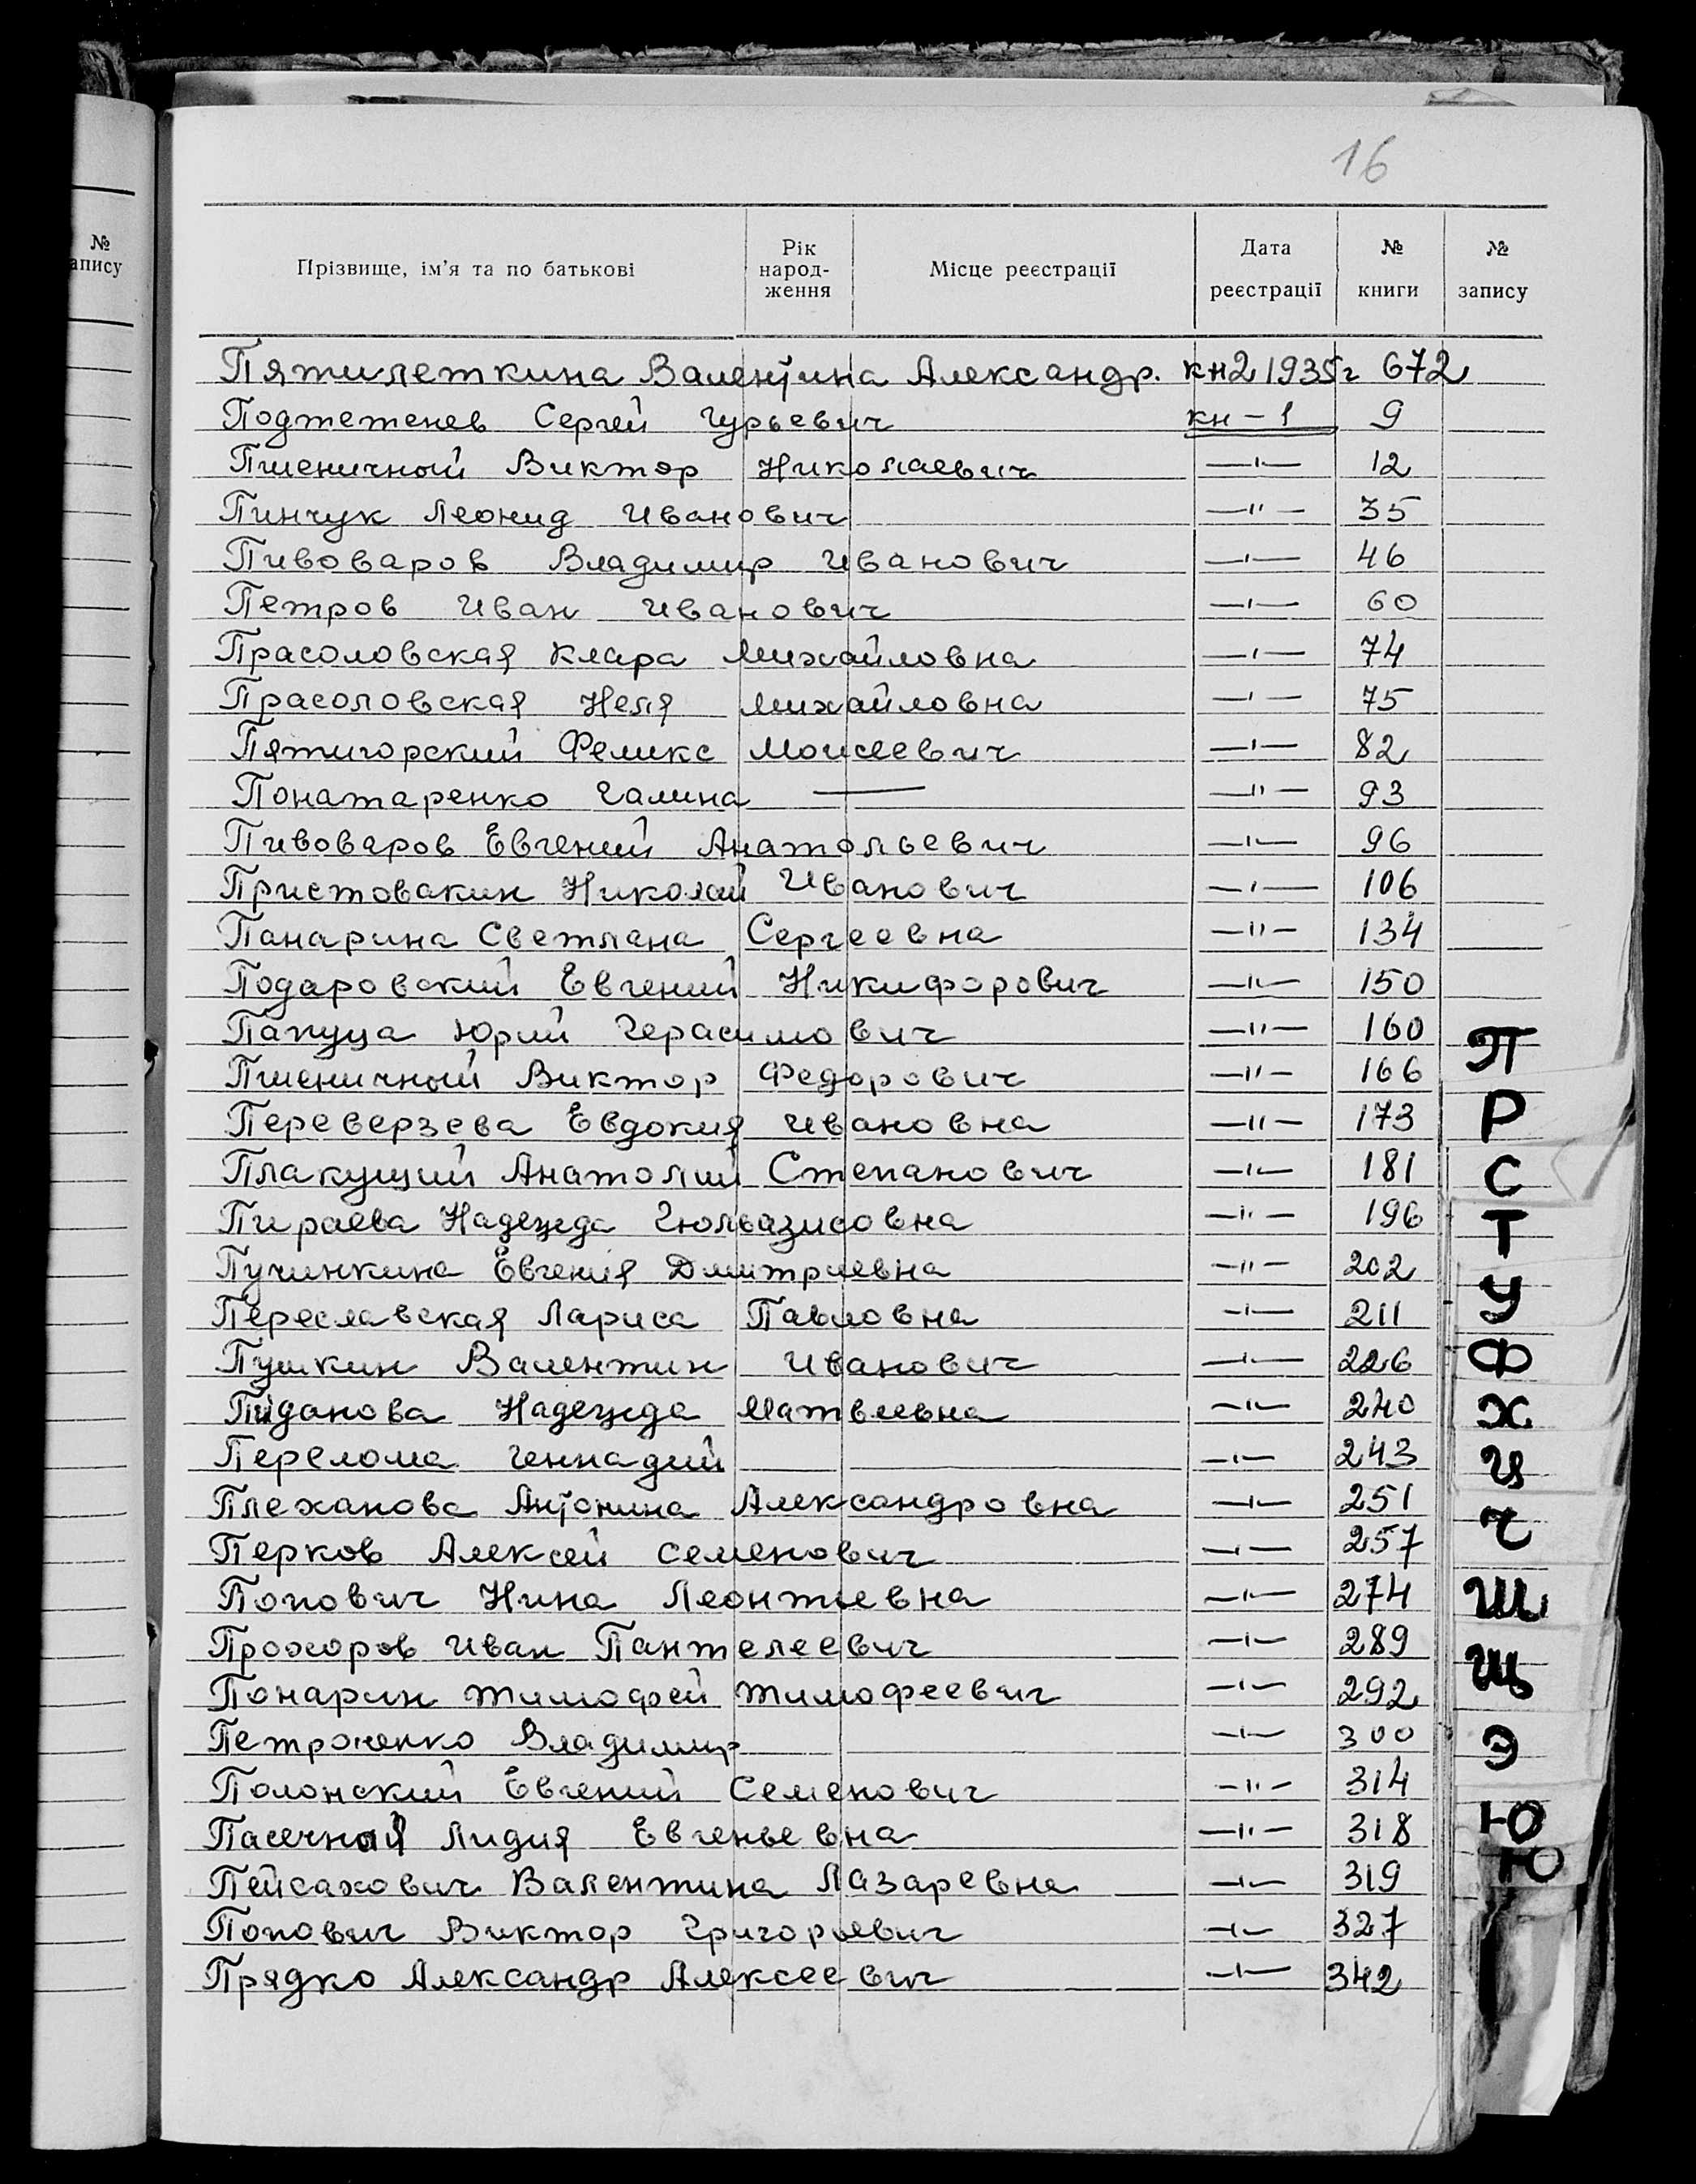 16
№
апису
Прізвище, ім'я та по батькові
Рік народ-ження
Місце реєстрації
Дата реєстрації
№ книги
№ запису
Пятилеткина Валентина Александр. кн2 1935г 672
Поджетенев Сергей Гурьевич кн-1 9
Пшеничный Виктор Николаевич —ı— 12
Пинчук Леонид Иванович —"— 35
Пивоваров Владимир Иванович —ı— 46
Петров Иван Иванович —ı— 60
Прасоловская Клара Михайловна —ı— 74
Прасоловская Неля Михайловна —ı— 75
Пятигорский Феликс Моисеевич —ı— 82
Понатаренко Галина — —"— 93
Пивоваров Евгений Анатольевич —"— 96
Пристовакин Николай Иванович —ı— 106
Панарина Светлана Сергеевна —"— 134
Подаровский Евгений Никифорович —"— 150
Папуца Юрий Герасимович —"— 160
Пшеничный Виктор Федорович —"— 166
Переверзева Евдокия Ивановна —"— 173
Плакущий Анатолий Степанович —"— 181
Пираева Надежда Гюльазисовна —"— 196
Пучинкина Евгения Дмитриевна —"— 202
Переславская Лариса Павловна —ı— 211
Пушкин Валентин Иванович —ı— 226
Надежда Матвеевна —"— 240
Перелома Геннадий —ı— 243
Плеханова Антонина Александровна —ı— 251
Перков Алексей Семенович —ı— 257
Попович Нина Леонтьевна —ı— 274
Прохоров Иван Пантелеевич —ı— 289
Понарин Тимофей Тимофеевич —ı— 292
Петроченко Владимир —ı— 300
Полонский Евгений Семенович —"— 314
Пасечная Лидия Евгеньевна —"— 318
Пейсахович Валентина Лазаревна —ı— 319
Попович Виктор Григорьевич —ı— 327
Прядко Александр Алексеевич —ı— 342
П
Р
С
Т
У
Ф
Х
Ц
Ч
Ш
Щ
Э
Ю
Ю